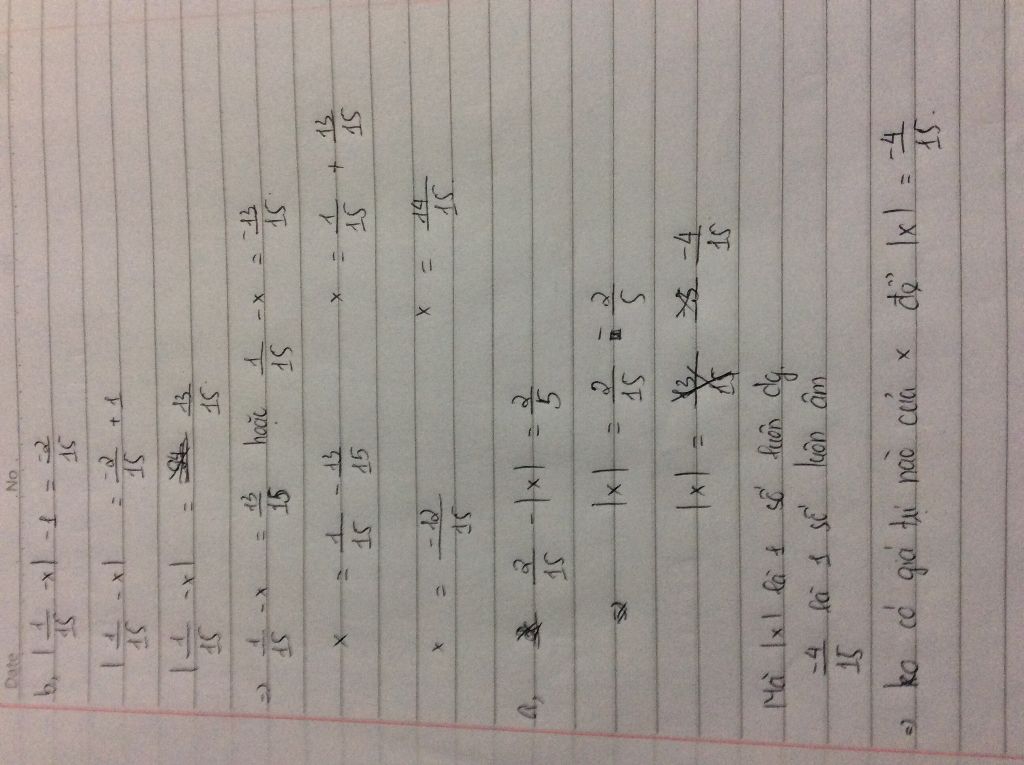 Date No
b, |1/15 - x| - 1 = -2/15
|1/15 - x| = -2/15 + 1
|1/15 - x| = 13/15
=> 1/15 - x = 13/15 hoặc 1/15 - x = -13/15
x = 1/15 - 13/15 x = 1/15 + 13/15
x = -12/15 x = 14/15
a, 2/15 - |x| = 2/5
|x| = 2/15 - 2/5
|x| = -4/15
Mà |x| là 1 số luôn dg
-4/15 là 1 số luôn âm
=> ko có giá trị nào của x để |x| = -4/15.